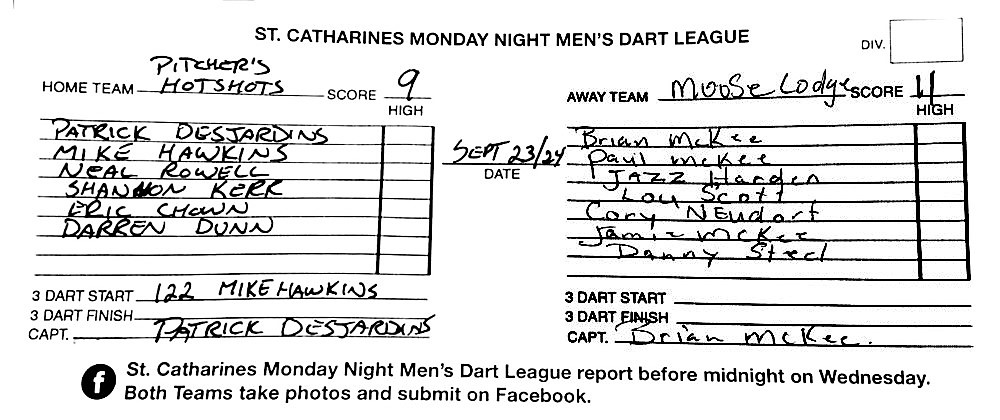 ST. CATHARINES MONDAY NIGHT MEN'S DART LEAGUE
DIV.
HOME TEAM PITCHER'S HOTSHOTS SCORE 9
HIGH
PATRICK DESJARDINS
MIKE HAWKINS
NEAL ROWELL
SHANNON KERR
ERIC CHOWN
DARREN DUNN
3 DART START 122 MIKE HAWKINS
3 DART FINISH
CAPT. PATRICK DESJARDINS
SEPT 23/24
DATE
AWAY TEAM Moose Lodge SCORE 11
HIGH
Brian McKee
Paul McKee
JAZZ Harden
Lou Scott
Cory NEudorf
Jamie McKee
Danny Steel
3 DART START
3 DART FINISH
CAPT. Brian McKee.
f St. Catharines Monday Night Men's Dart League report before midnight on Wednesday.
Both Teams take photos and submit on Facebook.